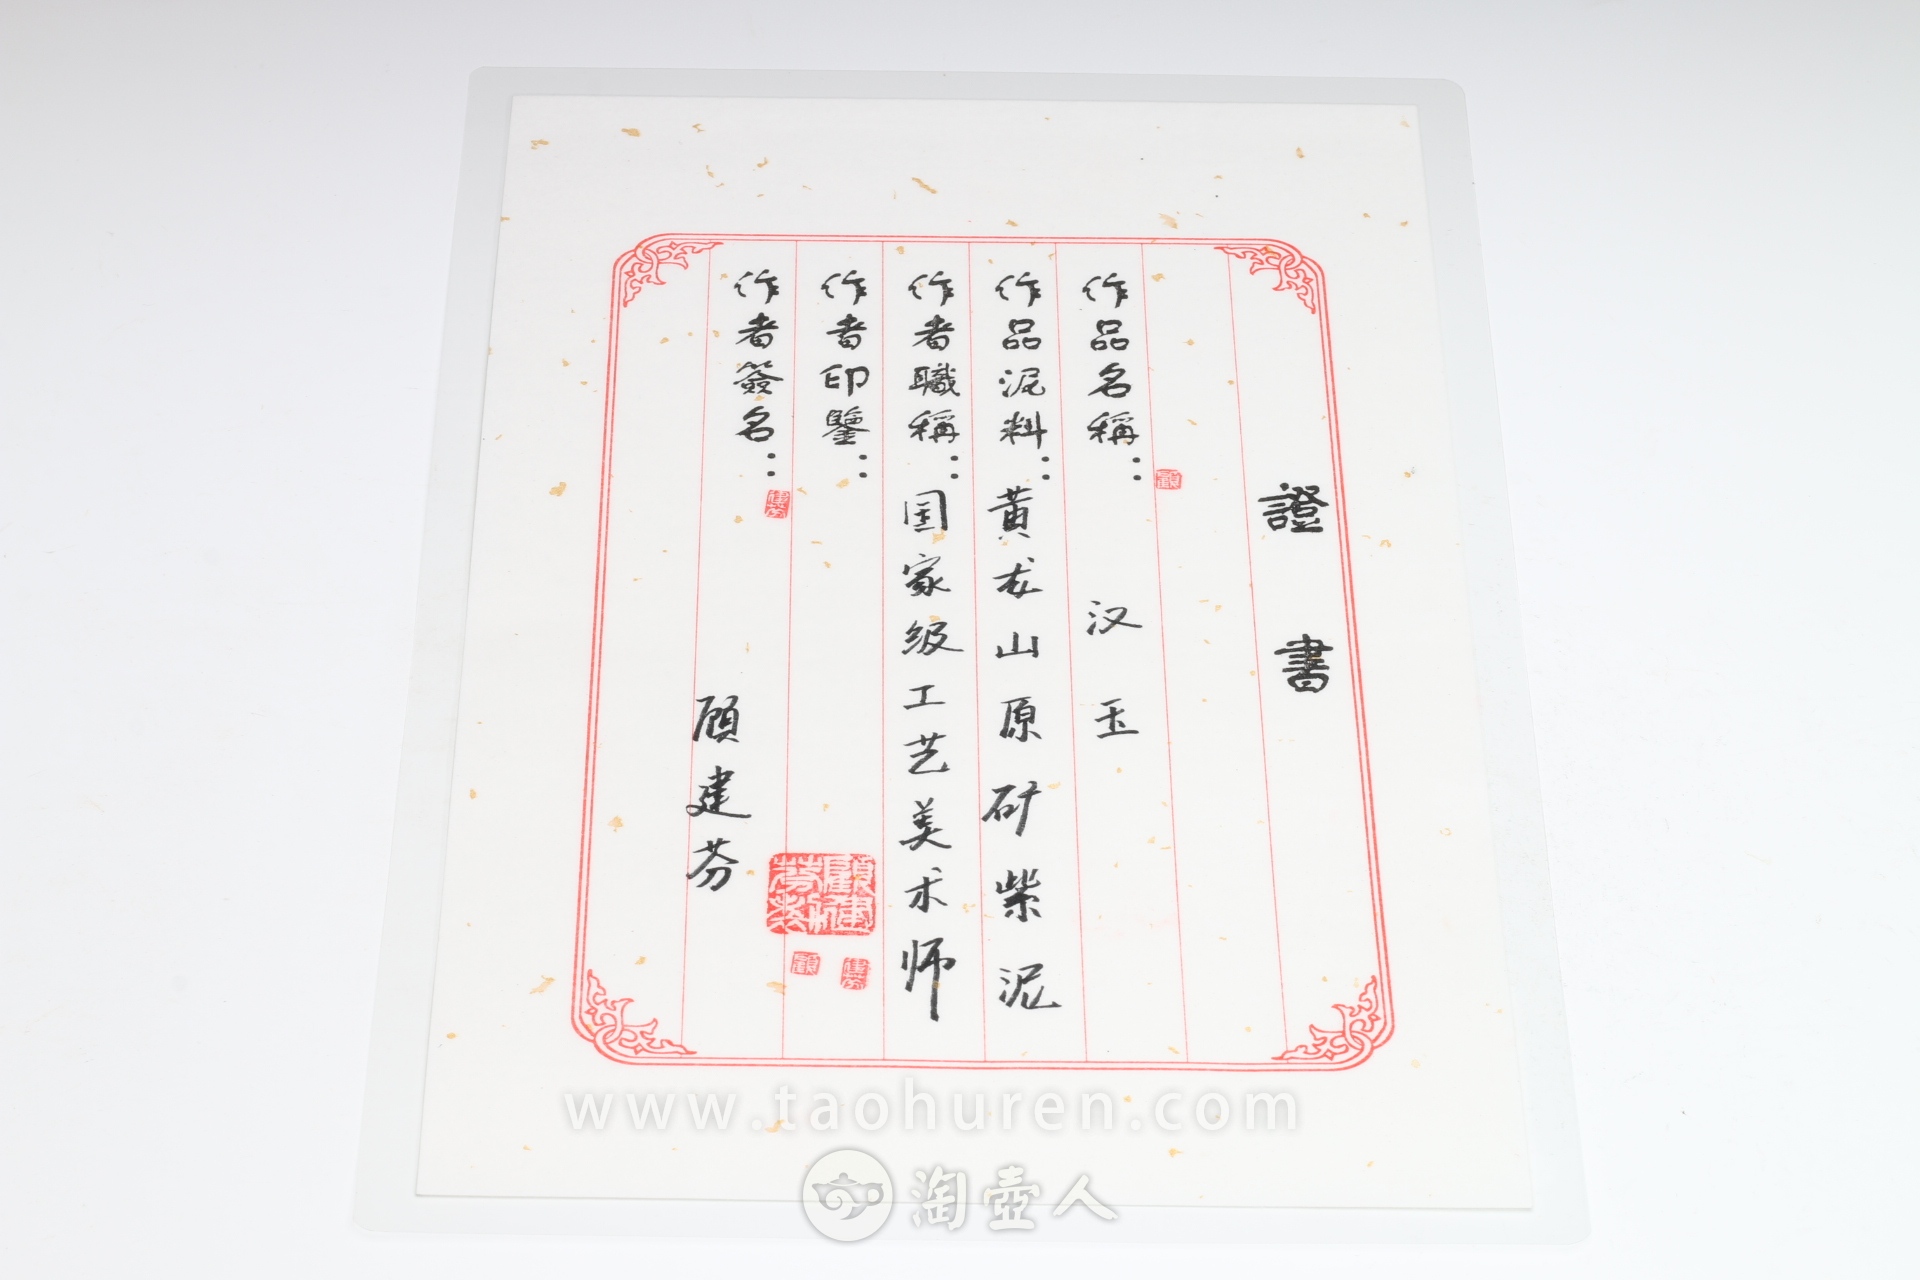 證書
作品名稱：汉玉
作品泥料：黄龙山原矿紫泥
作者職稱：国家级工艺美术师
作者印鑒：
作者簽名：顾建芬
顧
建芬
顧建芬
顧
建芬
www.taohuren.com
淘壶人